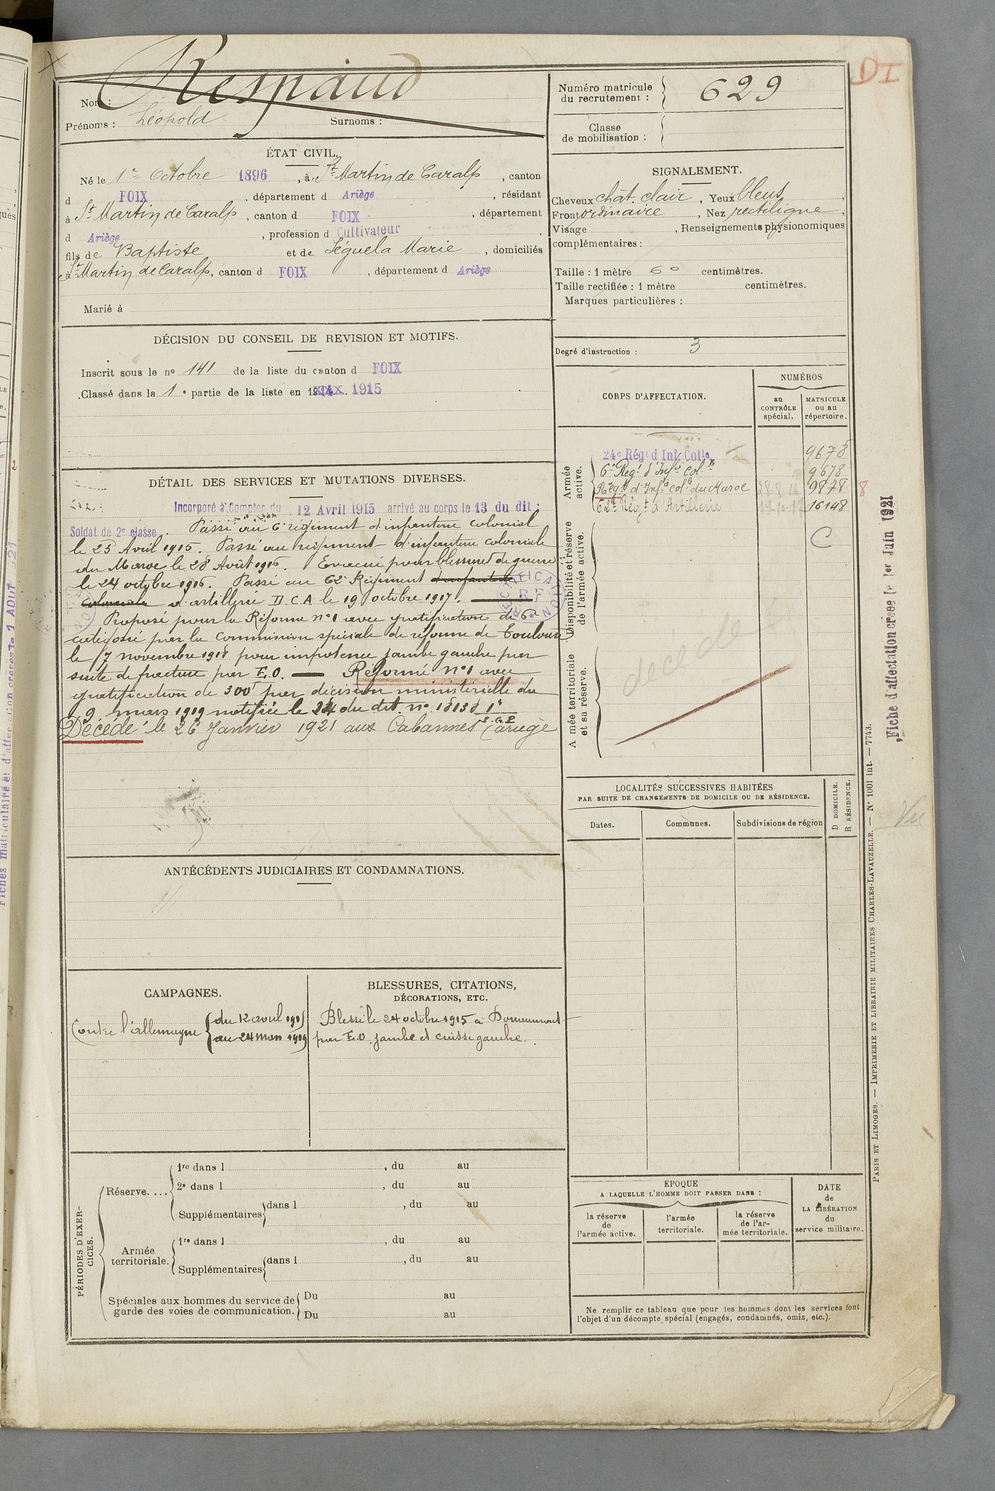 Respaud
Nom :
Prénoms : Léopold Surnoms :
Numéro matricule du recrutement : 629
Classe de mobilisation :
DI
ÉTAT CIVIL.
Né le 1er Octobre 1896, à St Martin de Caralp, canton
d FOIX, département d Ariège, résidant
à St Martin de Caralp, canton d FOIX, département
d Ariège, profession d Cultivateur
fils de Baptiste et de Séguela Marie, domiciliés
à St Martin de Caralp, canton d FOIX, département d Ariège
Marié à
SIGNALEMENT.
Cheveux chât. clair, Yeux bleus,
Front ordinaire, Nez rectiligne,
Visage , Renseignements physionomiques
complémentaires :
Taille : 1 mètre 60 centimètres.
Taille rectifiée : 1 mètre centimètres.
Marques particulières :
Degré d'instruction : 3
DÉCISION DU CONSEIL DE REVISION ET MOTIFS.
Inscrit sous le no 141 de la liste du canton d FOIX
Classé dans la 1e partie de la liste en 1915
DÉTAIL DES SERVICES ET MUTATIONS DIVERSES.
Incorporé à Compter du 12 Avril 1915 arrivé au corps le 13 du dit ;
Soldat de 2e classe. Passé au 6e régiment d'infanterie colonial
le 25 Avril 1916. Passé au régiment d'infanterie coloniale
du Maroc le 28 Août 1916. Evacué pour blessure de guerre
le 24 octobre 1916. Passé au 62e Régiment d'infanterie
coloniale d'artillerie D.C.A le 19 octobre 1917.
Proposé pour la Réforme no 1 avec gratification de 6e
catégorie par la Commission spéciale de réforme de Toulouse
le 7 novembre 1918 pour impotence jambe gauche par
suite de fracture par E.O. — Réformé no 1 avec
gratification de 300f par décision ministérielle du
9 mars 1919 notifiée le 24 du dit. no 18138 1e
S.G.P.
Décédé le 26 Janvier 1921 aux Cabannes (ariège
CORPS D'AFFECTATION.
NUMÉROS
au CONTRÔLE spécial.
MATRICULE ou au répertoire.
Armée active.
24e Régt d'Inf. Colle 9678
6e Régt d'Infie Colle 9678
Régt d'Infie Cole du Maroc 9878
62e Régt d'Artillerie 16148
C
Disponibilité et réserve de l'armée active.
Armée territoriale et sa réserve.
décédé
LOCALITÉS SUCCESSIVES HABITÉES
PAR SUITE DE CHANGEMENTS DE DOMICILE OU DE RÉSIDENCE.
Dates. Communes. Subdivisions de région
D DOMICILE.
R RÉSIDENCE.
ANTÉCÉDENTS JUDICIAIRES ET CONDAMNATIONS.
CAMPAGNES.
Contre l'allemagne du 12 avril 1915
au 24 mars 1919
BLESSURES, CITATIONS,
DÉCORATIONS, ETC.
Blessé le 24 octobre 1915 à Douaumont
par E.O. jambe et cuisse gauche.
PÉRIODES D'EXERCICES.
Réserve....
1re dans l , du au
2e dans l , du au
Supplémentaires dans l , du au
Armée territoriale.
1re dans l , du au
Supplémentaires dans l , du au
Spéciales aux hommes du service de garde des voies de communication.
Du au
Du au
EPOQUE
A LAQUELLE L'HOMME DOIT PASSER DANS :
la réserve de l'armée active.
l'armée territoriale.
la réserve de l'armée territoriale.
DATE de LA LIBÉRATION du service militaire.
Ne remplir ce tableau que pour les hommes dont les services font
l'objet d'un décompte spécial (engagés, condamnés, omis, etc.).
Fiche d'affectation créée le 1er Juin 1921
Vu
PARIS ET LIMOGES. — IMPRIMERIE ET LIBRAIRIE MILITAIRES CHARLES-LAVAUZELLE. — No 1001 int. — 7743.